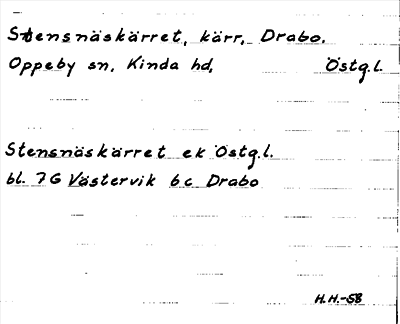 Stensnäskärret, kärr, Drabo.
Oppeby sn, Kinda hd, Östg.l.
Stensnäskärret ek Östg.l.
bl. 7G Västervik bc Drabo
H.H.-58